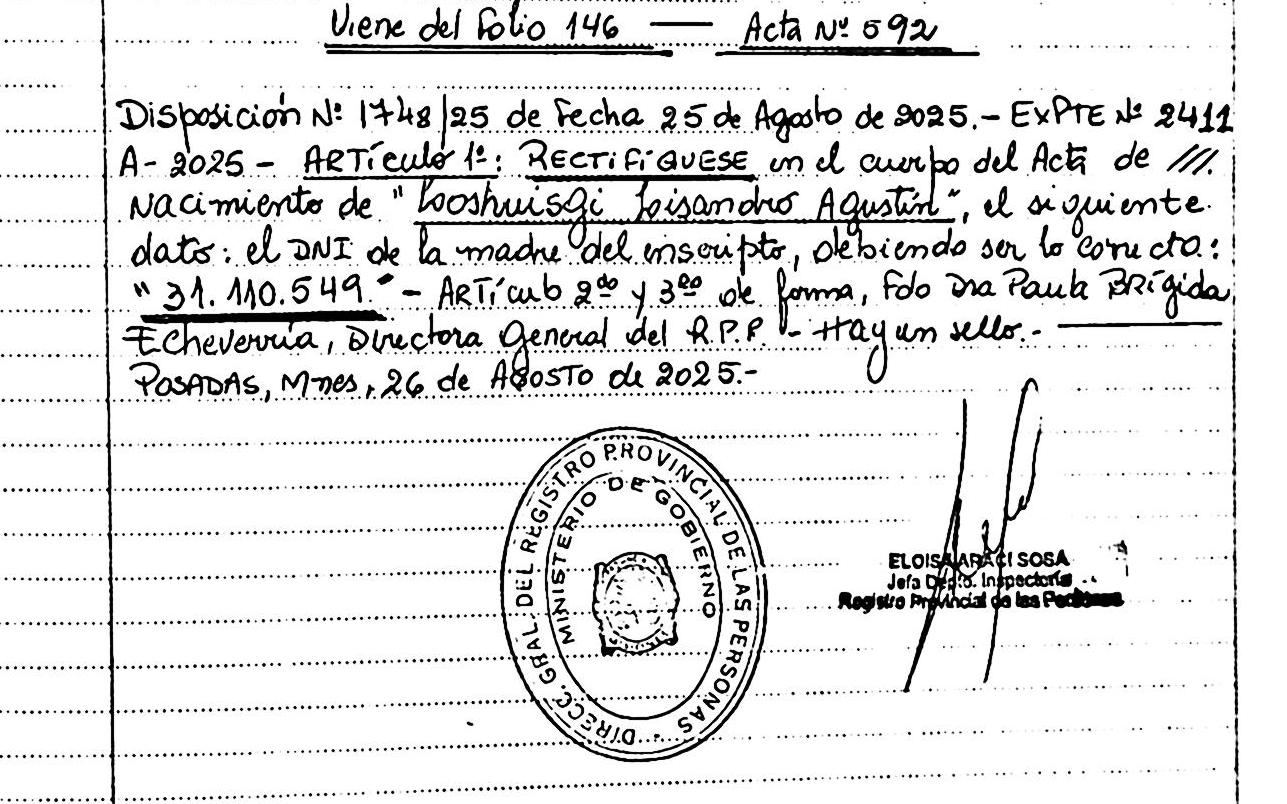 Viene del Folio 146 — Acta Nº 592
Disposición Nº 1748/25 de Fecha 25 de Agosto de 2025.- EXPTE Nº 2411
A- 2025 - ARTÍCULO 1º: RECTIFÍQUESE en el cuerpo del Acta de ///.
Nacimiento de " Lisandro Agustín", el siguiente
dato: el DNI de la madre del inscripto, debiendo ser lo correcto:
"31.110.549" - ARTÍCULO 2do y 3ro de forma, Fdo Dra Paula BRÍgida
Echeverría, Directora General del R.P.P. - Hay un sello.-
POSADAS, Mnes, 26 de AGOSTO de 2025.-
DIRECC. GRAL. DEL REGISTRO PROVINCIAL DE LAS PERSONAS
MINISTERIO DE GOBIERNO
ELOISA ARACI SOSA
Jefa Depto. Inspectoría
Registro Provincial de las Personas